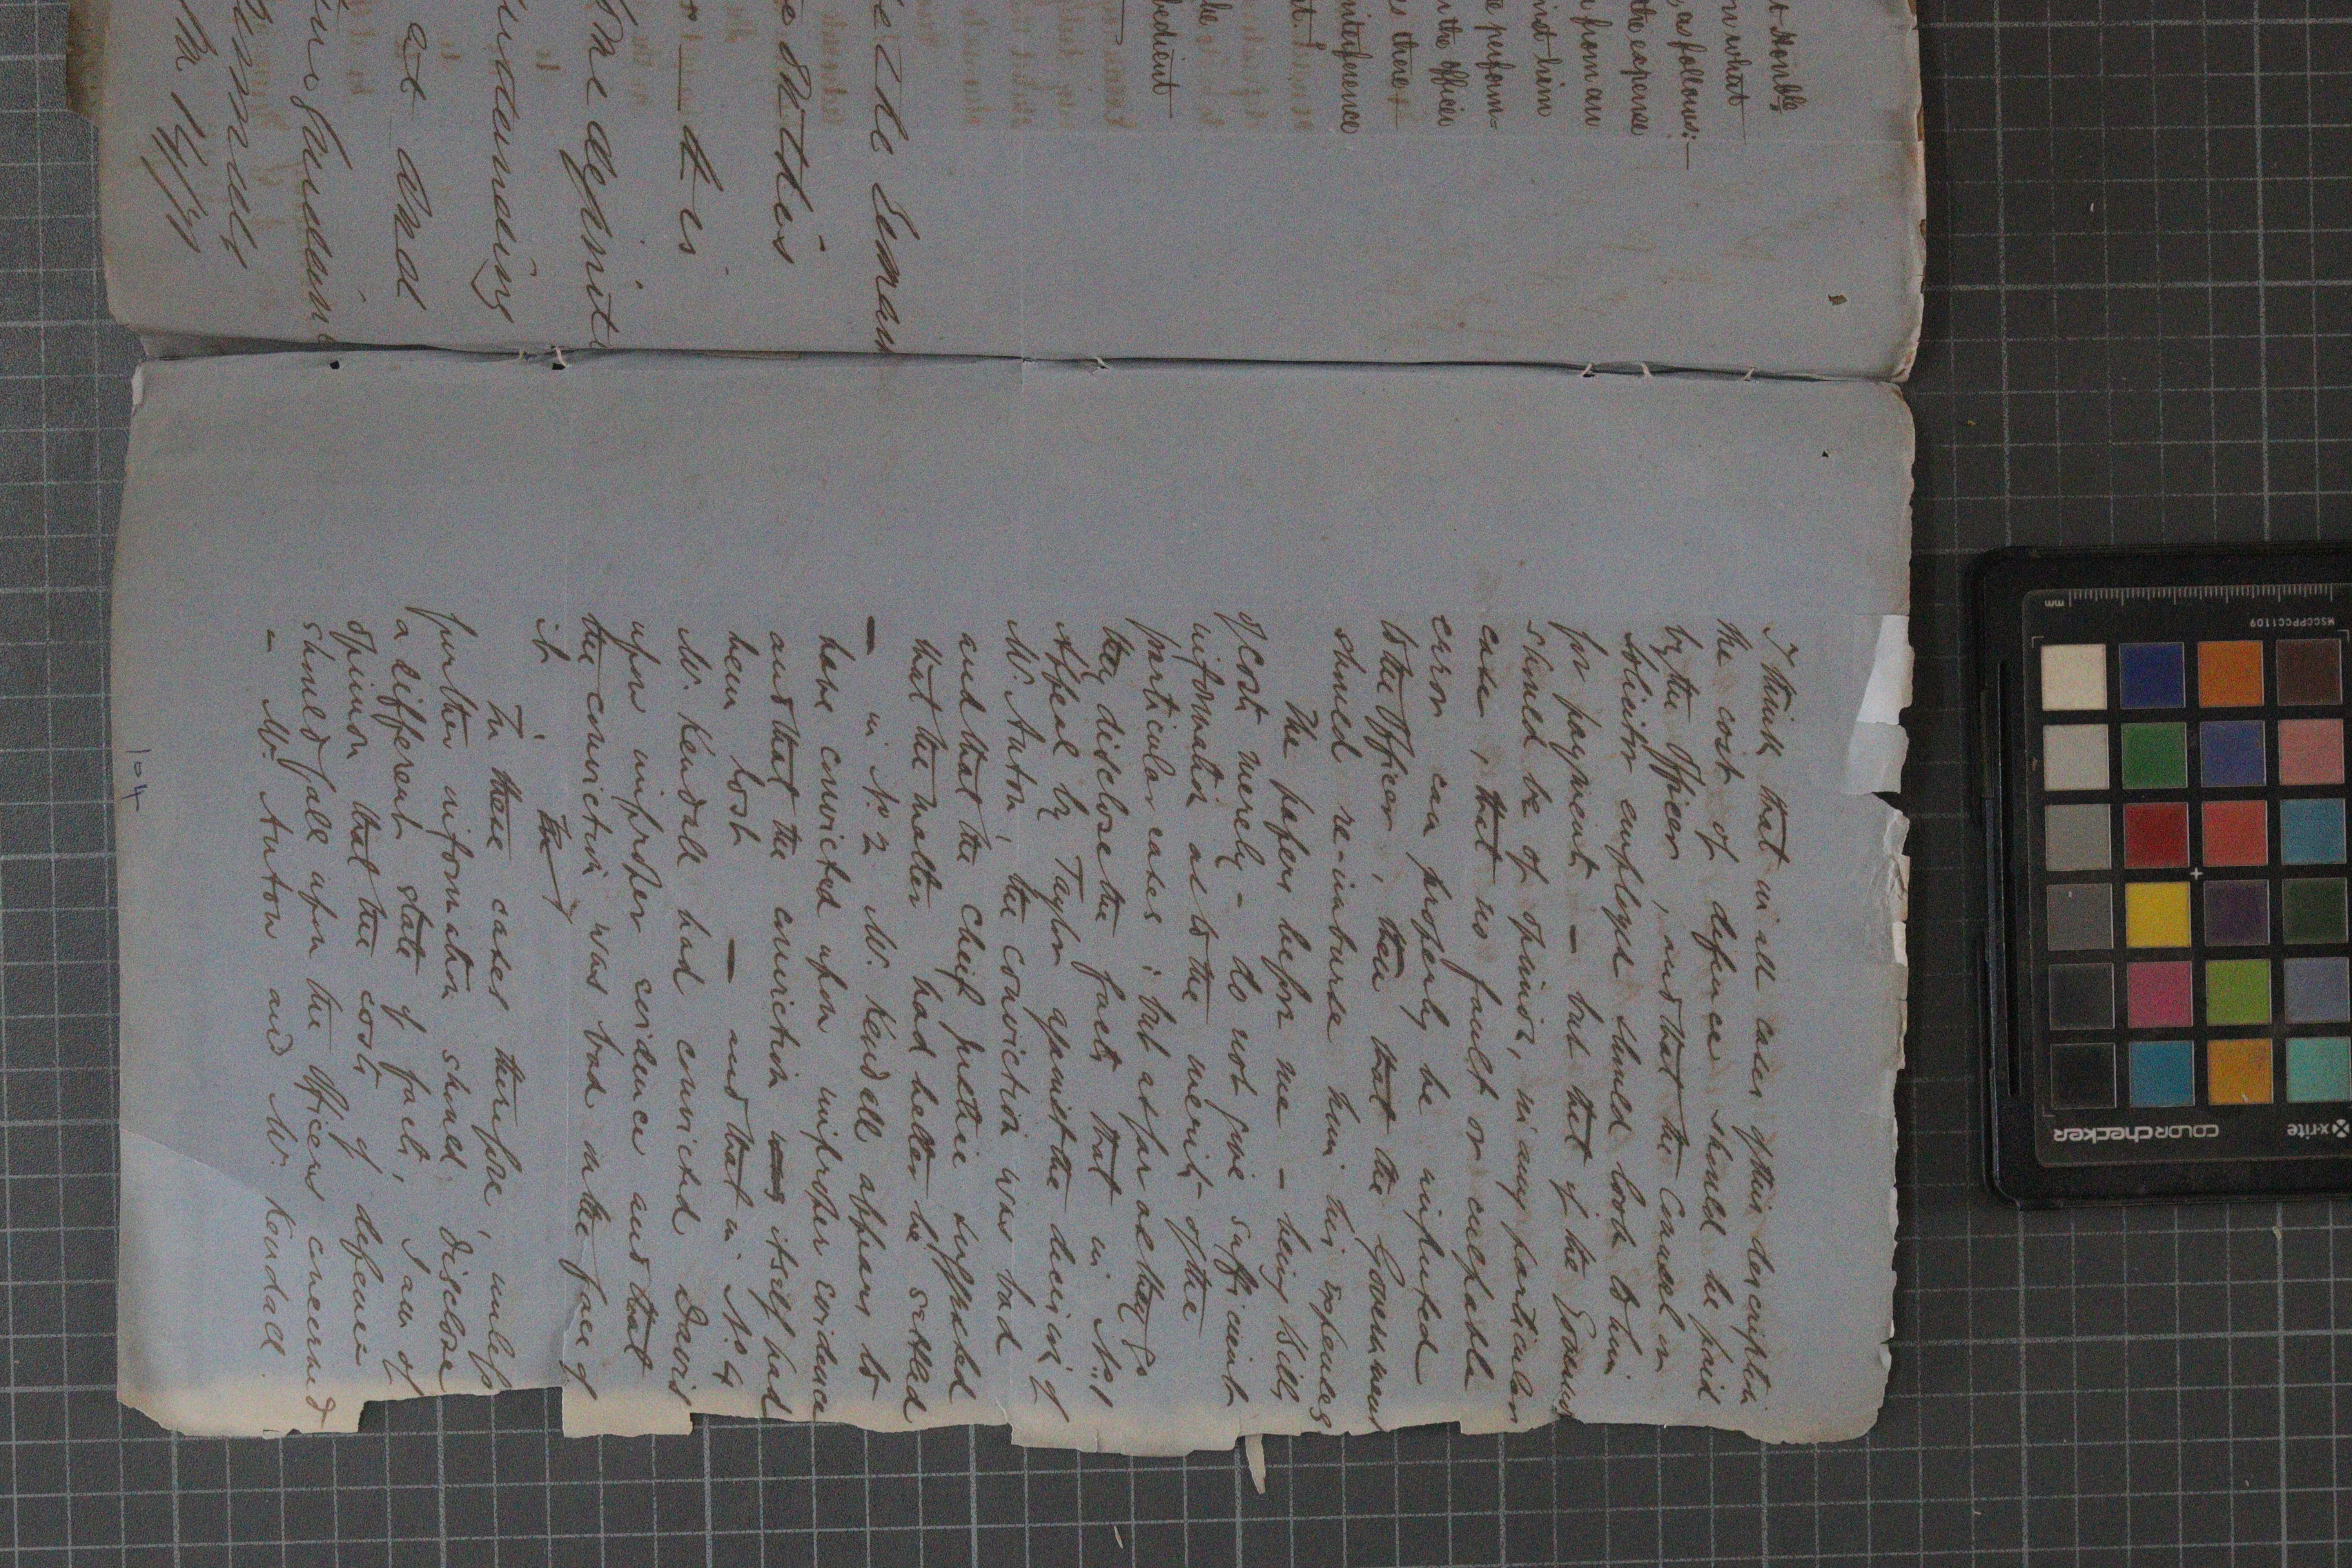 t Honble
n what
, as follows:—
the expense
n from an
inst him
e perform=
the officer
s there
interference
nt.
he
pedient
e the Eman
e duties
it is
The definite
understanding
at and
I think that in all cases of this description
the cost of defence should be paid
by the Officer, and that the Counsel or
Solicitor employed should look to him
for payment – but that if the Governor
should be of opinion, in any particular
case, that no fault or culpable
error can properly be imputed
to the Officer, then that the Government
should re-imburse him his expenses
The papers before me – being Bills
of cost merely – do not give sufficient
information as to the merits of the
particular cases; but as far as they go
they disclose the facts that in No. 1
Appeal by Taylor against the decision of
Mr. Auton, the conviction was bad
and that the Chief Justice suggested
that the matter had better be settled
— in No. 2 Mr. Kendall appears to
have convicted upon improper evidence
and that the conviction was itself had
been lost — and that in No. 4
Mr. Kendall had convicted Davis
upon improper evidence and that
the conviction was bad on the face of
it. The
In these cases therefore, unless
further information should disclose
a different state of facts, I am of
opinion that the costs of defence
should fall upon the Officers concerned
– Mr. Auton and Mr. Kendall
104
mm
MSCCPPCC1109
colorchecker
x-rite